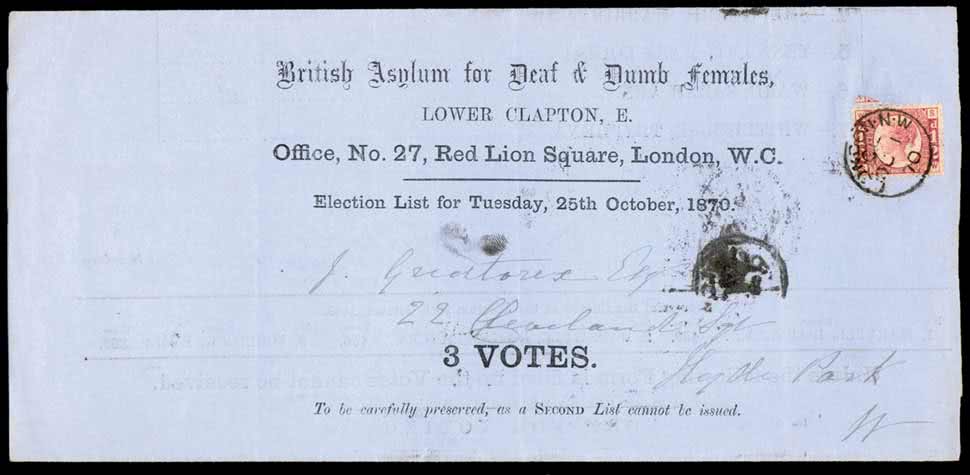 British Asylum for Deaf & Dumb Females,
LOWER CLAPTON, E.
Office, No. 27, Red Lion Square, London, W.C.
Election List for Tuesday, 25th October, 1870.
LONDON·N·W
70
J. Greatorex Esq
22 Cleveland Sqr
3 VOTES.
Hyde Park
W
To be carefully preserved, as a SECOND List cannot be issued.